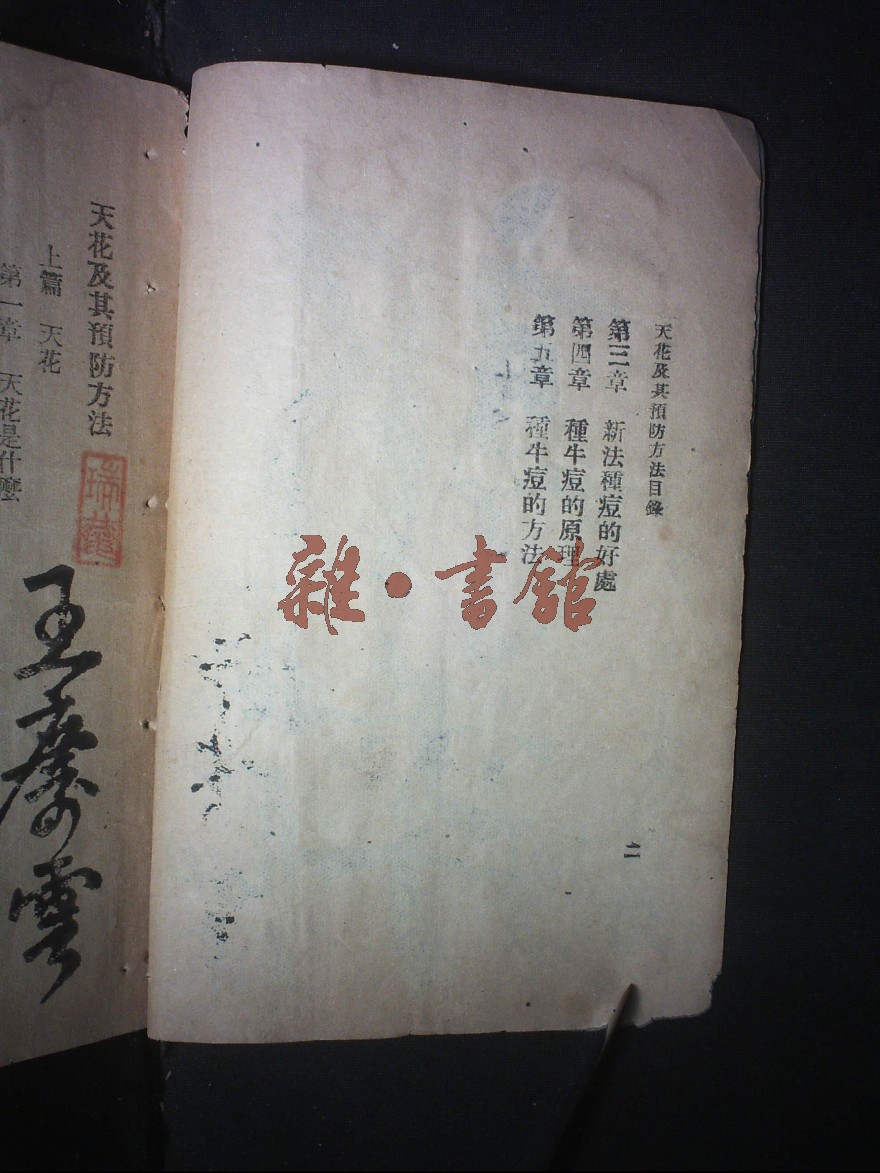 天花及其預防方法目錄
第三章　新法種痘的好處
第四章　種牛痘的原理
第五章　種牛痘的方法
二
雜·書館
天花及其預防方法
上篇　天花
第一章　天花是什麼
王
雲